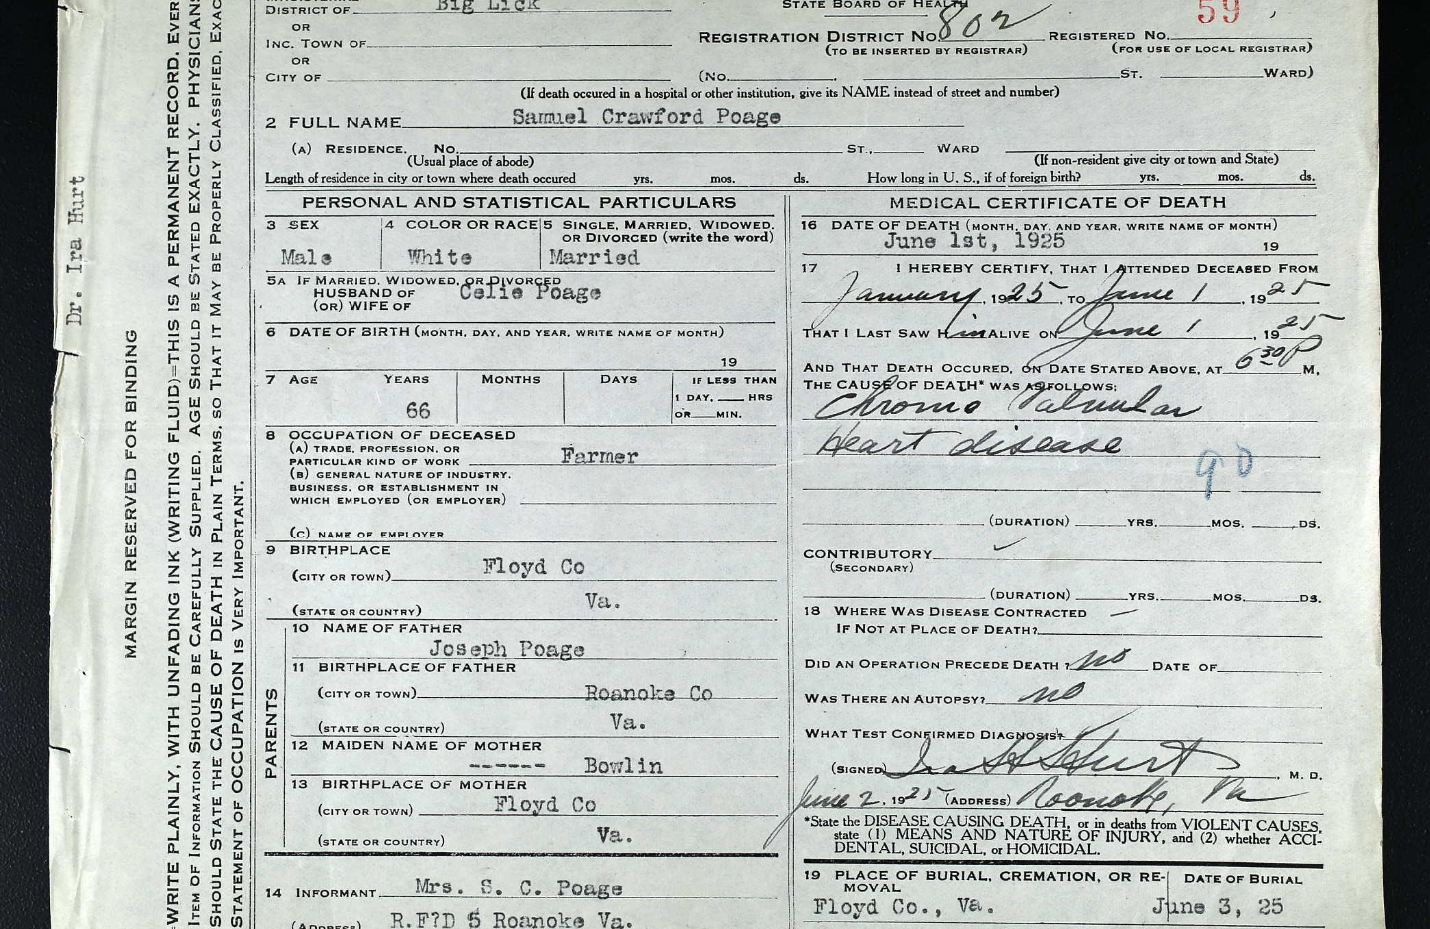 DISTRICT OF Big Lick
STATE BOARD OF HEALTH
59
OR
REGISTRATION DISTRICT No. 802 REGISTERED No.
INC. TOWN OF
(TO BE INSERTED BY REGISTRAR) (FOR USE OF LOCAL REGISTRAR)
OR
CITY OF (No. ST. WARD)
(If death occured in a hospital or other institution, give its NAME instead of street and number)
2 FULL NAME Samuel Crawford Poage
(A) RESIDENCE. No. ST., WARD
(Usual place of abode) (If non-resident give city or town and State)
Length of residence in city or town where death occured yrs. mos. ds. How long in U. S., if of foreign birth? yrs. mos. ds.
PERSONAL AND STATISTICAL PARTICULARS
3 SEX
Male
4 COLOR OR RACE
White
5 SINGLE, MARRIED, WIDOWED,
OR DIVORCED (write the word)
Married
5A IF MARRIED, WIDOWED, OR DIVORCED
HUSBAND OF Celie Poage
(OR) WIFE OF
6 DATE OF BIRTH (MONTH, DAY, AND YEAR, WRITE NAME OF MONTH)
19
7 AGE YEARS MONTHS DAYS IF LESS THAN
1 DAY, HRS
66 OR MIN.
8 OCCUPATION OF DECEASED
(A) TRADE, PROFESSION, OR
PARTICULAR KIND OF WORK Farmer
(B) GENERAL NATURE OF INDUSTRY,
BUSINESS, OR ESTABLISHMENT IN
WHICH EMPLOYED (OR EMPLOYER)
(C) NAME OF EMPLOYER
9 BIRTHPLACE
(CITY OR TOWN) Floyd Co
(STATE OR COUNTRY) Va.
PARENTS
10 NAME OF FATHER
Joseph Poage
11 BIRTHPLACE OF FATHER
(CITY OR TOWN) Roanoke Co
(STATE OR COUNTRY) Va.
12 MAIDEN NAME OF MOTHER
------ Bowlin
13 BIRTHPLACE OF MOTHER
(CITY OR TOWN) Floyd Co
(STATE OR COUNTRY) Va.
14 INFORMANT Mrs. S. C. Poage
(ADDRESS) R.F?D 5 Roanoke Va.
MEDICAL CERTIFICATE OF DEATH
16 DATE OF DEATH (MONTH, DAY, AND YEAR, WRITE NAME OF MONTH)
June 1st, 1925 19
17 I HEREBY CERTIFY, THAT I ATTENDED DECEASED FROM
January, 1925, TO June 1, 1925
THAT I LAST SAW Him ALIVE ON June 1, 1925
AND THAT DEATH OCCURED, ON DATE STATED ABOVE, AT 6 30 P M.
THE CAUSE OF DEATH* WAS AS FOLLOWS:
Chronic Valvular
Heart disease
90
(DURATION) YRS. MOS. DS.
CONTRIBUTORY
(SECONDARY)
(DURATION) YRS. MOS. DS.
18 WHERE WAS DISEASE CONTRACTED
IF NOT AT PLACE OF DEATH?
DID AN OPERATION PRECEDE DEATH? no DATE OF
WAS THERE AN AUTOPSY? no
WHAT TEST CONFIRMED DIAGNOSIS?
(SIGNED) Ira H Hurt, M. D.
June 2, 1925 (ADDRESS) Roanoke, Va
*State the DISEASE CAUSING DEATH, or in deaths from VIOLENT CAUSES,
state (1) MEANS AND NATURE OF INJURY, and (2) whether ACCI-
DENTAL, SUICIDAL, or HOMICIDAL.
19 PLACE OF BURIAL, CREMATION, OR RE-
MOVAL
Floyd Co., Va.
DATE OF BURIAL
June 3, 25
Dr. Ira Hurt
MARGIN RESERVED FOR BINDING
WRITE PLAINLY, WITH UNFADING INK (WRITING FLUID)=THIS IS A PERMANENT RECORD. EVER
ITEM OF INFORMATION SHOULD BE CAREFULLY SUPPLIED. AGE SHOULD BE STATED EXACTLY. PHYSICIANS
SHOULD STATE THE CAUSE OF DEATH IN PLAIN TERMS, SO THAT IT MAY BE PROPERLY CLASSIFIED, EXAC
STATEMENT OF OCCUPATION IS VERY IMPORTANT.